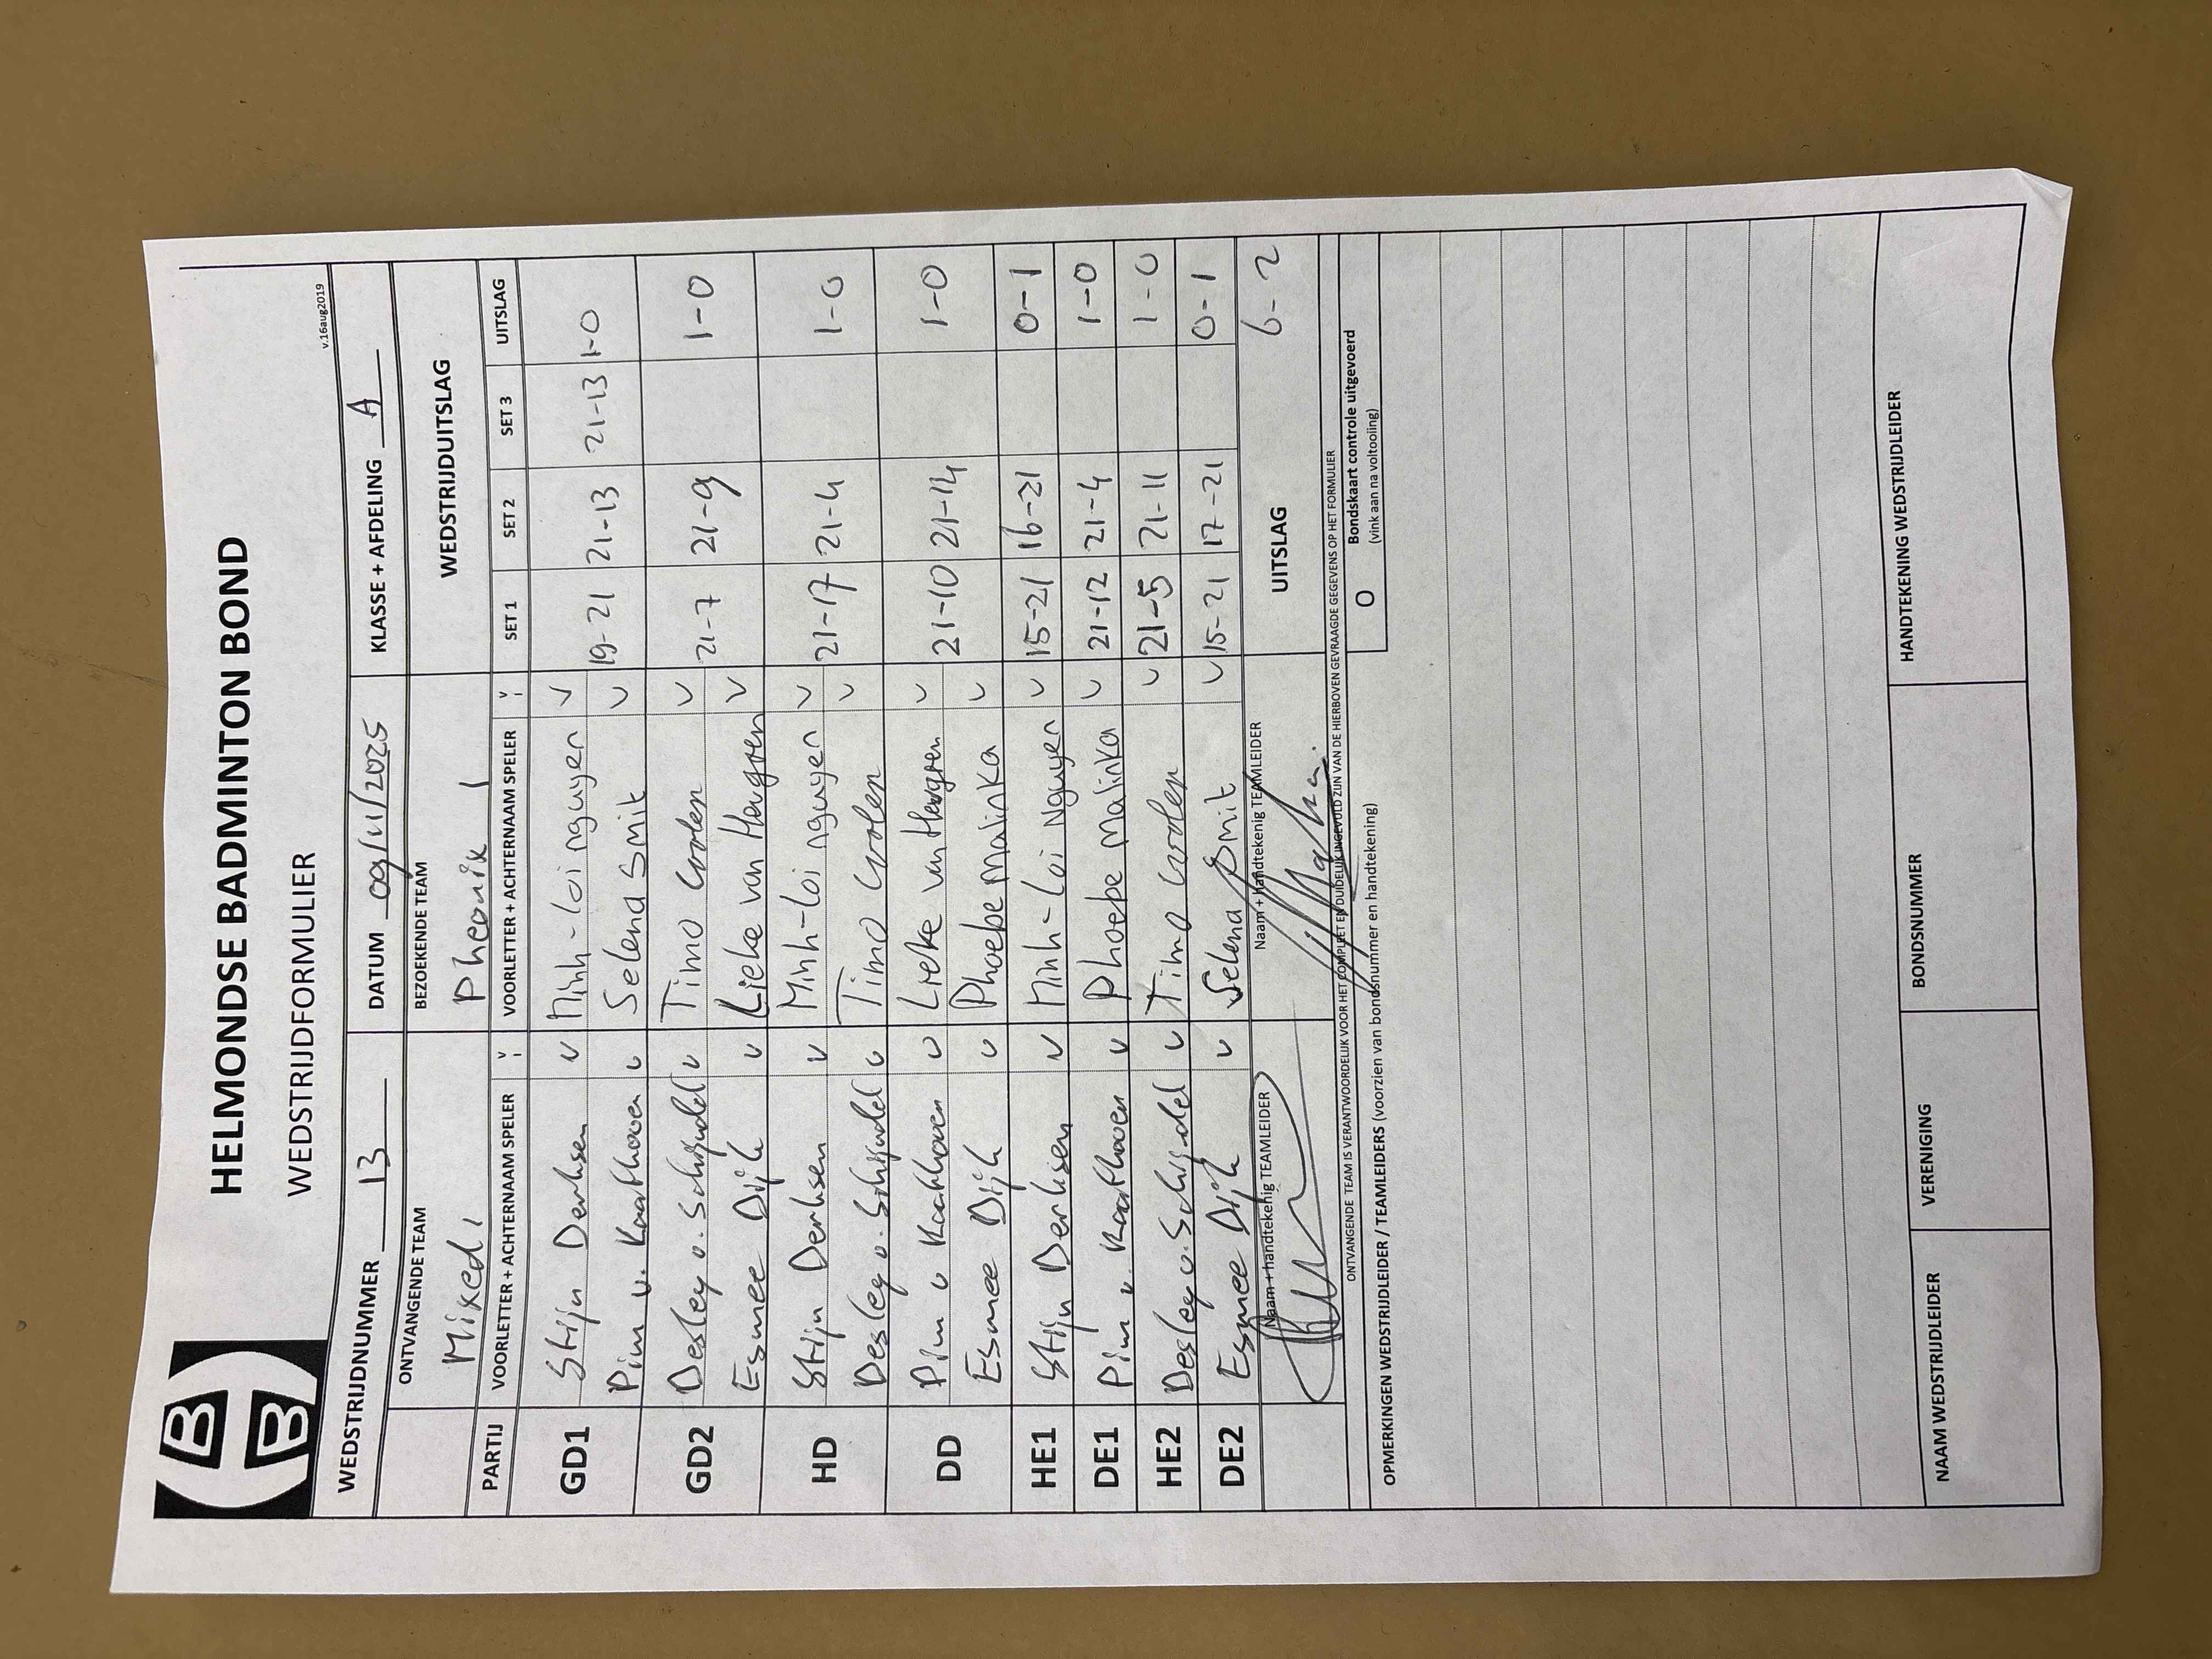 HELMONDSE BADMINTON BOND
WEDSTRIJDFORMULIER
v.16aug2019
WEDSTRIJDNUMMER 13 DATUM 09/11/2025 KLASSE + AFDELING A
ONTVANGENDE TEAM BEZOEKENDE TEAM WEDSTRIJDUITSLAG
Mixed 1 Pheonix 1
PARTIJ VOORLETTER + ACHTERNAAM SPELER V VOORLETTER + ACHTERNAAM SPELER V SET 1 SET 2 SET 3 UITSLAG
GD1 Stijn Derksen v Minh-Loi nguyen v 19-21 21-13 21-13 1-0
Pim v. Kaathoven v Selena Smit v
GD2 Desley v. Schijndel v Timo Coolen v 21-7 21-9 1-0
Esmee Dijk v Lieke van Heugten v
HD Stijn Derksen v Minh-Loi nguyen v 21-17 21-4 1-0
Desley v. Schijndel v Timo Coolen v
DD Pim v Kaathoven v Lieke van Heugten v 21-10 21-14 1-0
Esmee Dijk v Phoebe Malinka v
HE1 Stijn Derksen v Minh-Loi Nguyen v 15-21 16-21 0-1
DE1 Pim v. Kaathoven v Phoebe Malinka v 21-12 21-4 1-0
HE2 Desley v. Schijndel v Timo Coolen v 21-5 21-11 1-0
DE2 Esmee Dijk v Selena Smit v 15-21 17-21 0-1
Naam + handtekenig TEAMLEIDER Naam + handtekenig TEAMLEIDER UITSLAG 6-2
ONTVANGENDE TEAM IS VERANTWOORDELIJK VOOR HET COMPLEET EN DUIDELIJK INGEVULD ZIJN VAN DE HIERBOVEN GEVRAAGDE GEGEVENS OP HET FORMULIER
O Bondskaart controle uitgevoerd
(vink aan na voltooiing)
OPMERKINGEN WEDSTRIJDLEIDER / TEAMLEIDERS (voorzien van bondsnummer en handtekening)
NAAM WEDSTRIJDLEIDER VERENIGING BONDSNUMMER HANDTEKENING WEDSTRIJDLEIDER